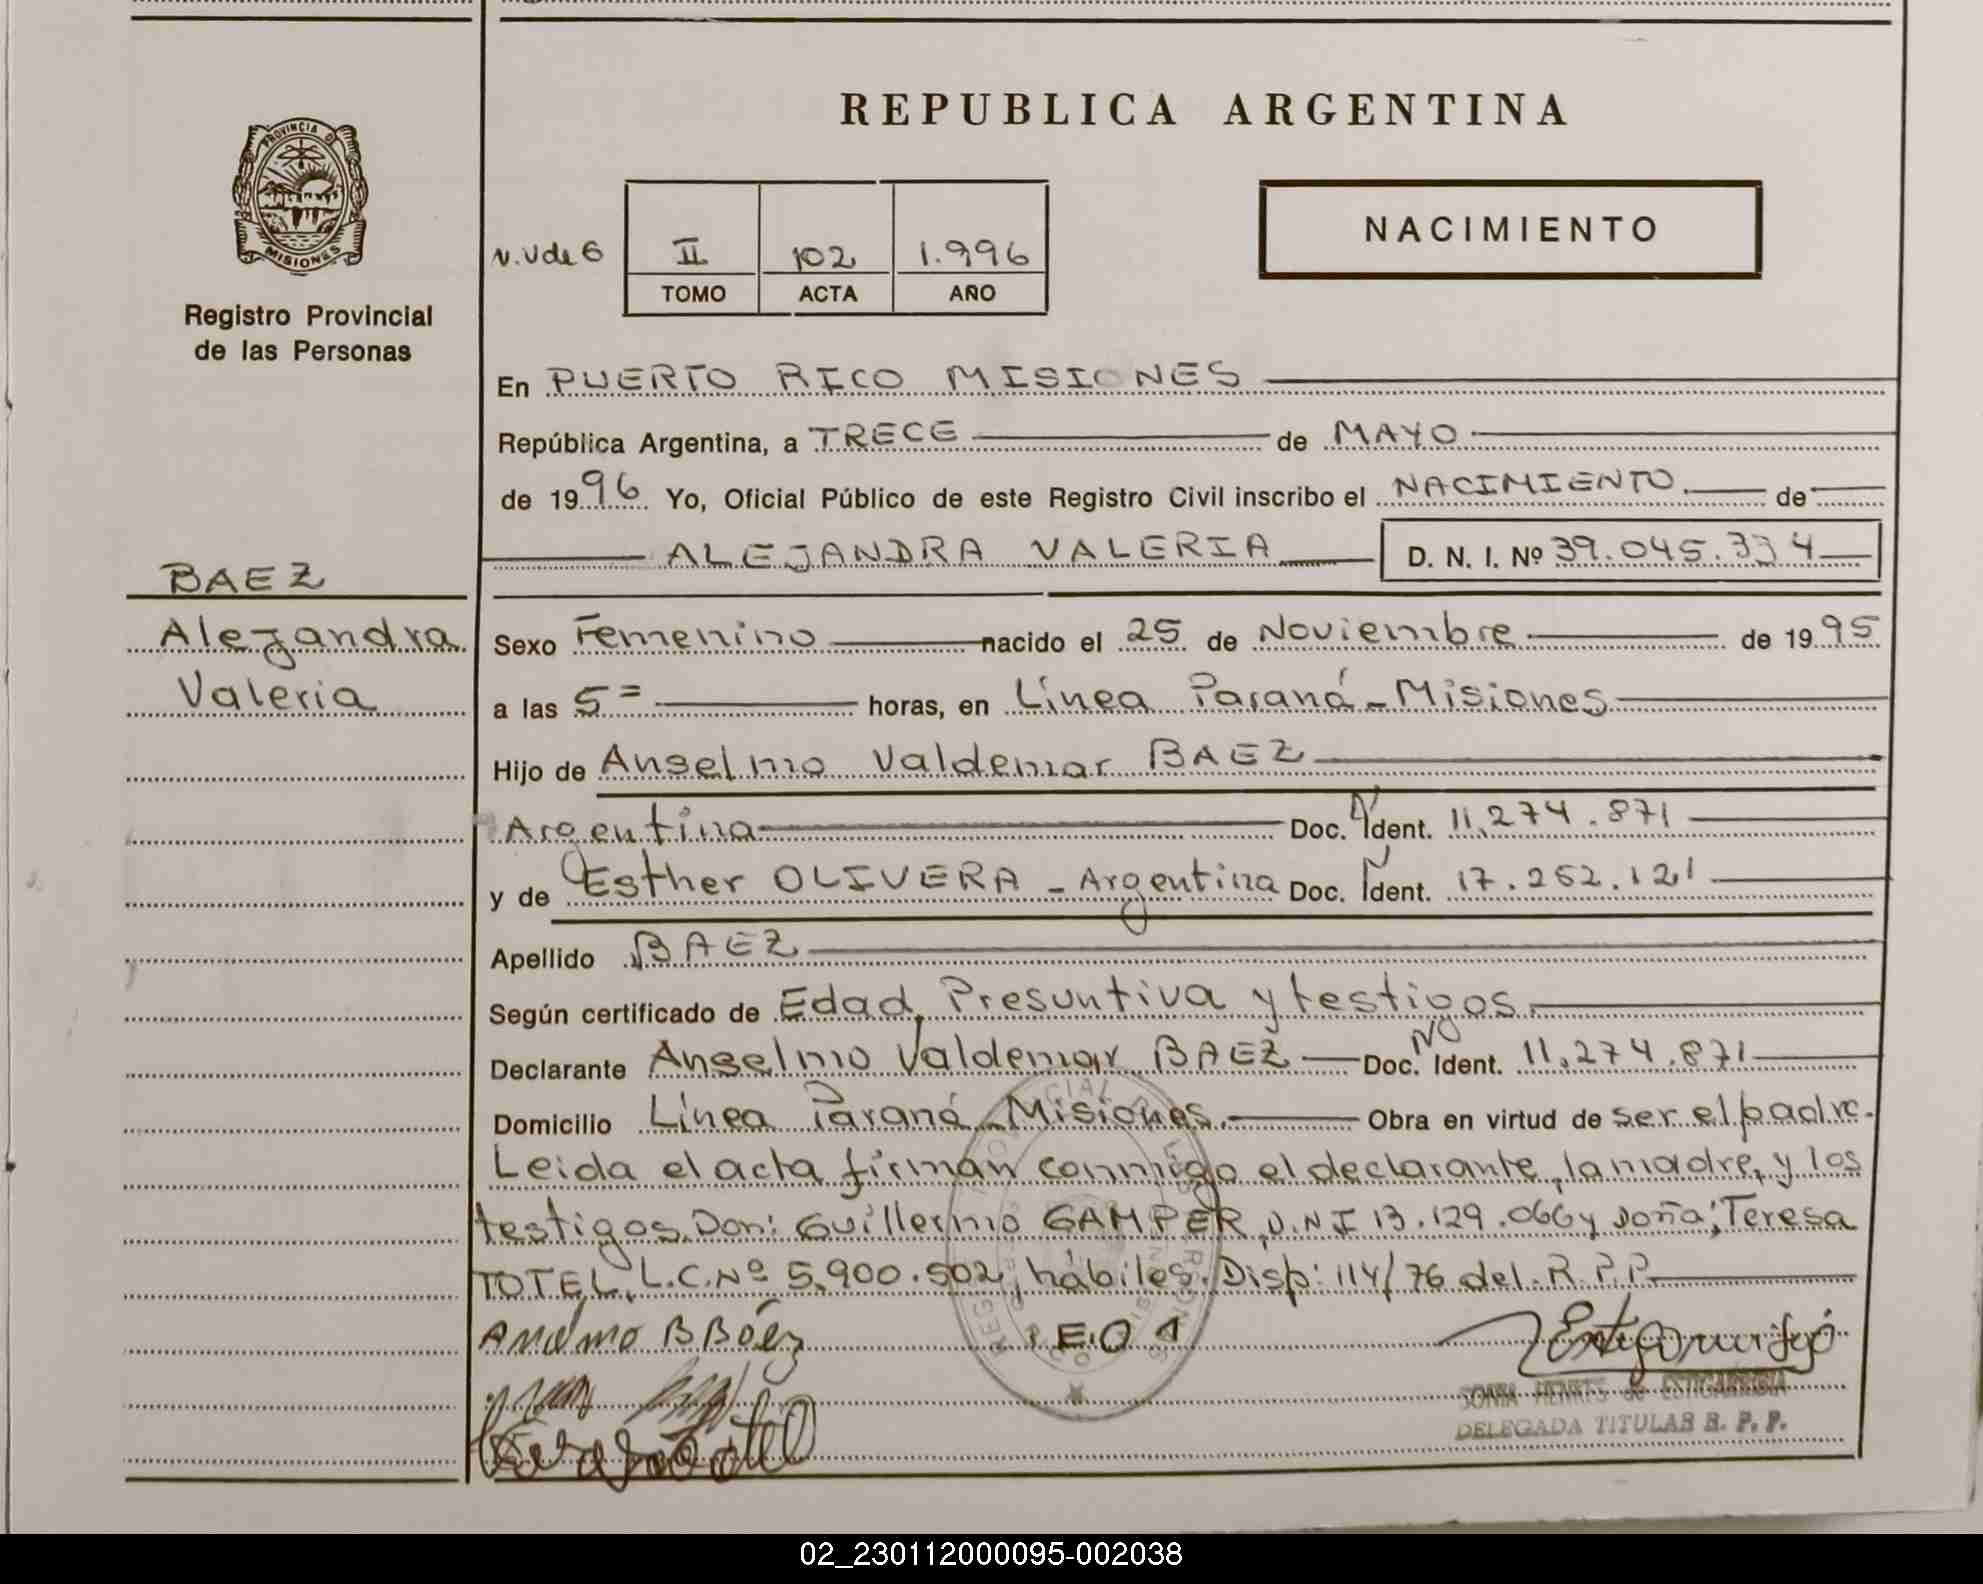 REPUBLICA ARGENTINA
PROVINCIA D
MISIONES
Registro Provincial
de las Personas
NACIMIENTO
II 102 1.996
TOMO ACTA AÑO
En PUERTO RICO MISIONES
República Argentina, a TRECE de MAYO
de 1996 Yo, Oficial Público de este Registro Civil inscribo el NACIMIENTO de
ALEJANDRA VALERIA D. N. I. Nº 39.045.334
BAEZ
Alejandra
Valeria
Sexo Femenino nacido el 25 de Noviembre de 1995
a las 5= horas, en Línea Paraná - Misiones
Hijo de Anselmo Valdemar BAEZ
Argentina Doc. N Ident. 11.274.871
y de Esther OLIVERA - Argentina Doc. N Ident. 17.252.121
Apellido BAEZ
Según certificado de Edad Presuntiva y testigos
Declarante Anselmo Valdemar BAEZ Doc. Nº Ident. 11.274.871
Domicilio Línea Paraná - Misiones. Obra en virtud de ser el padre.
Leida el acta firman conmigo el declarante, la madre, y los
testigos Don: Guillermo GAMPER, D.N.I 13.129.066 y Doña; Teresa
TOTEL, L.C.Nº 5.900.502, hábiles. Disp: 114/76 del R.P.P.
SONIA de ESTIGARRIBIA
DELEGADA TITULAR R. P. P.
02_230112000095-002038